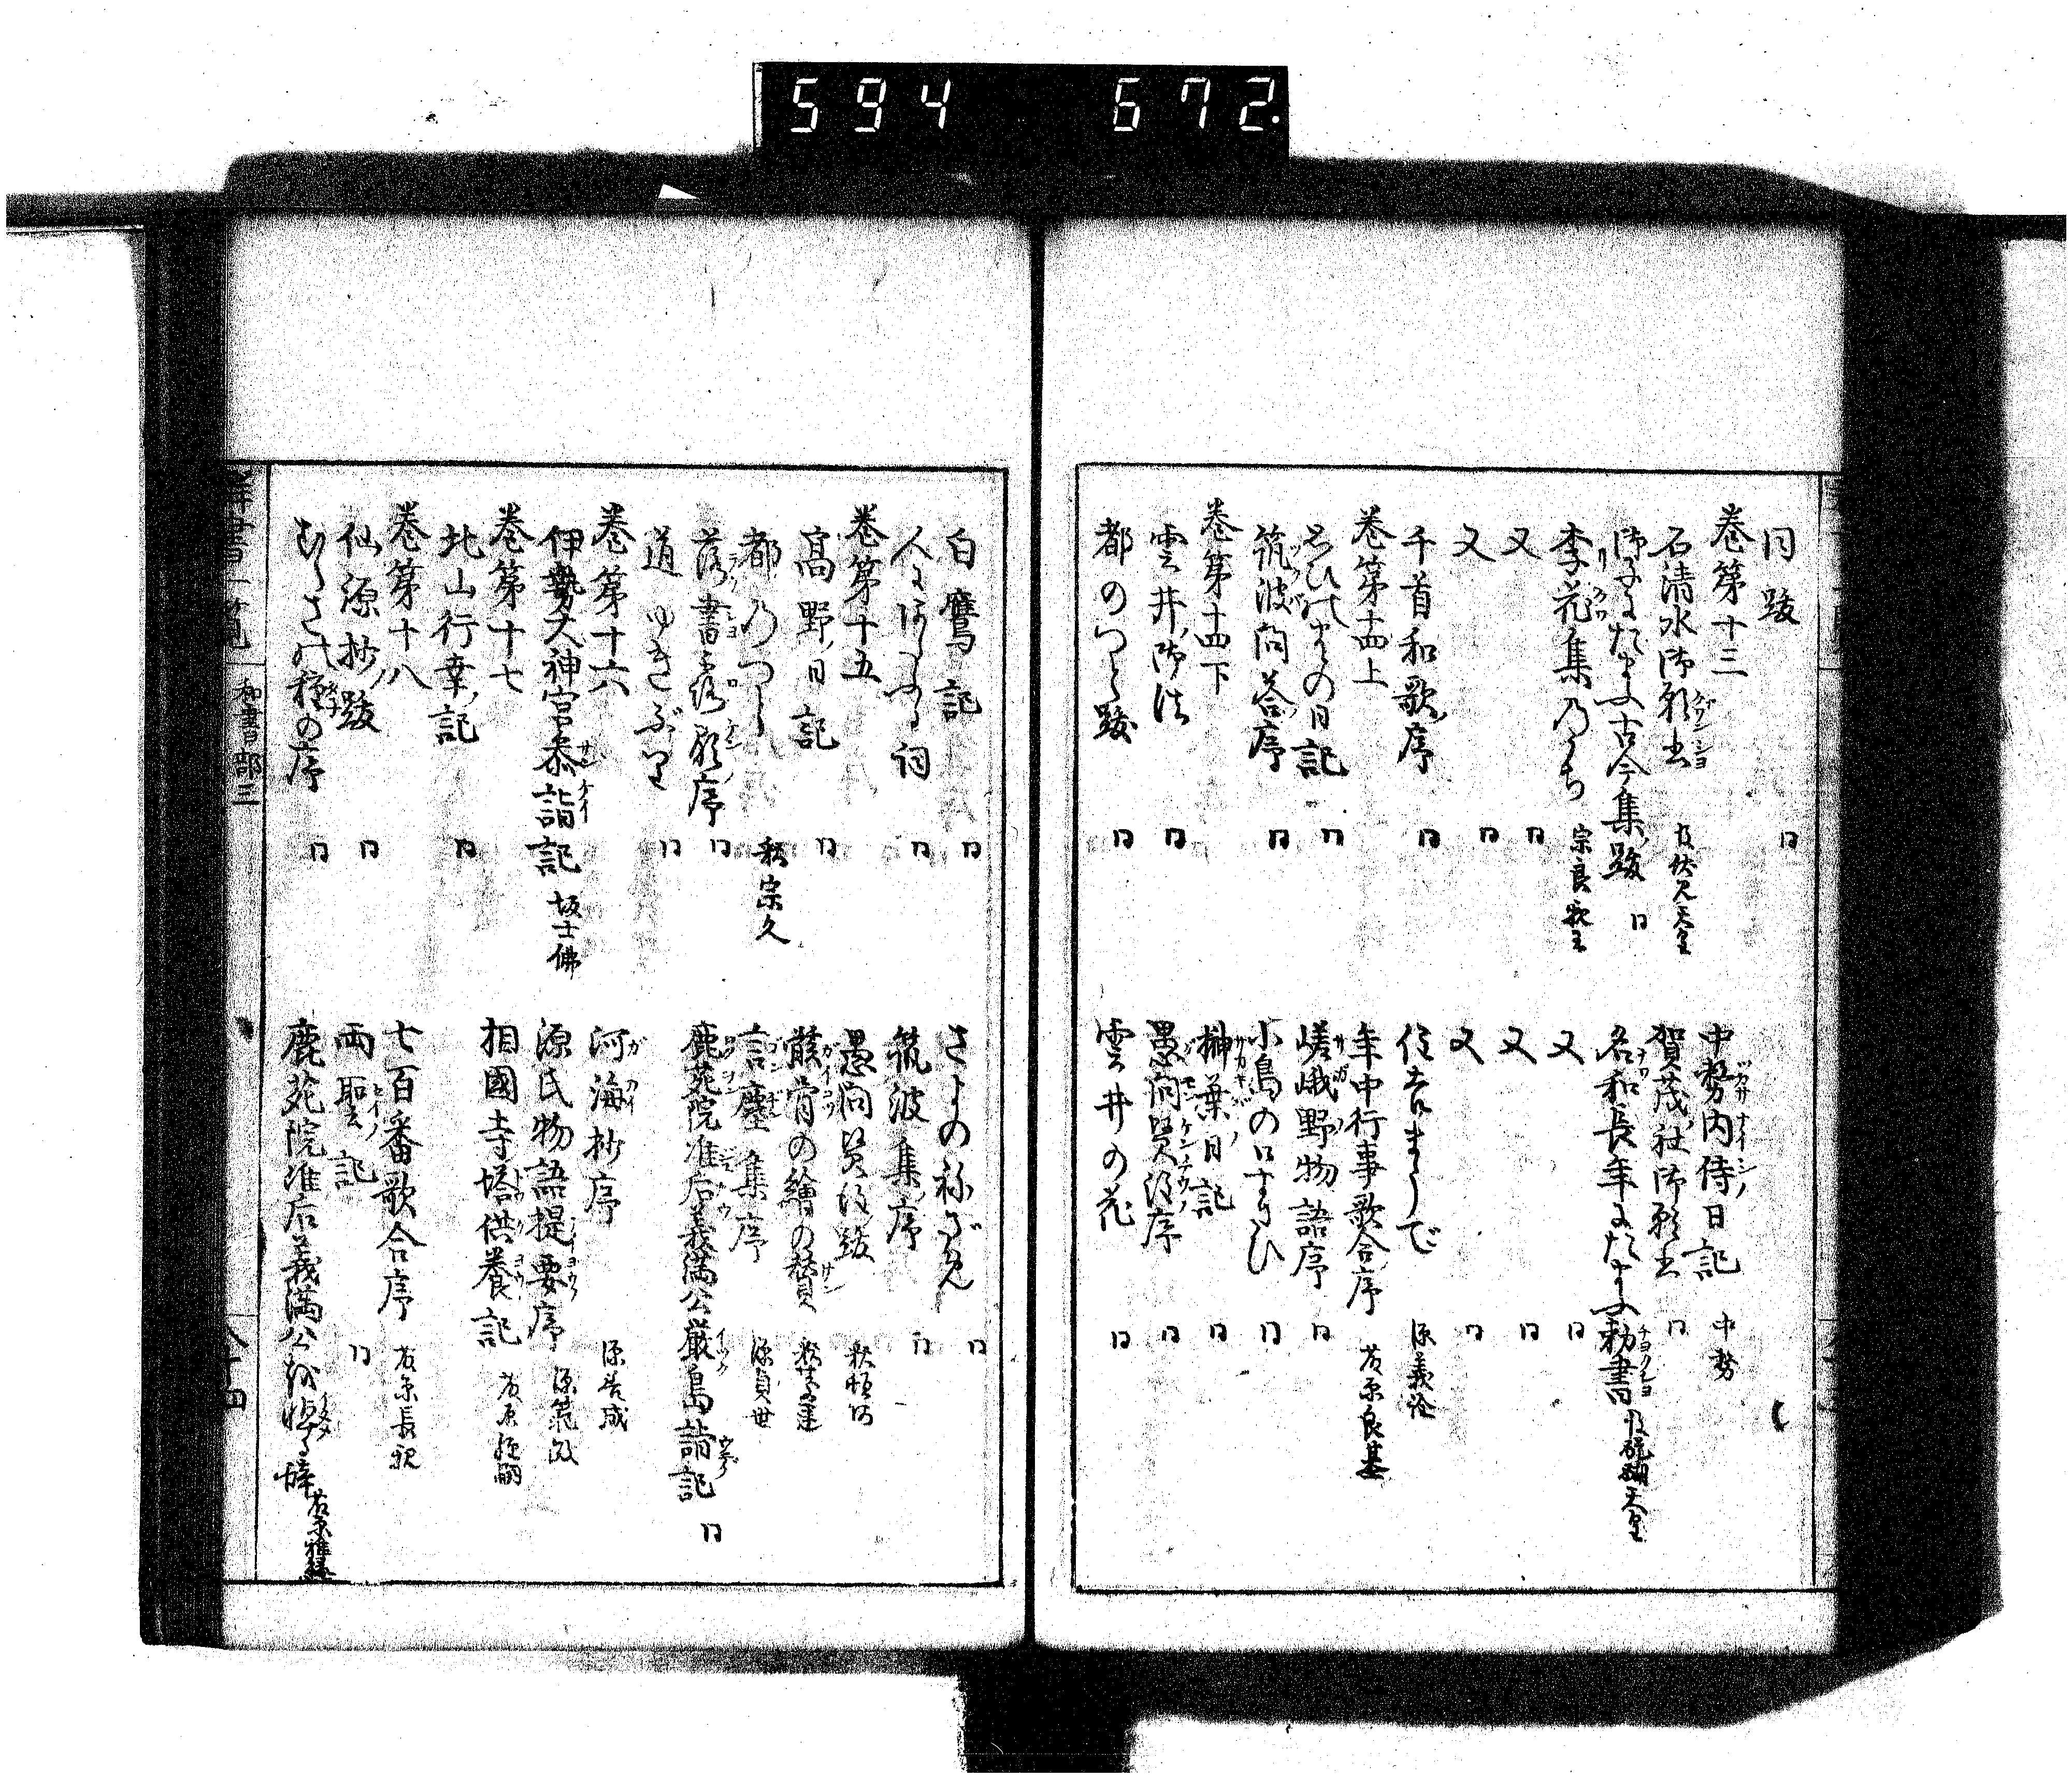 594 672.
同跋 同
巻第十三
中勢内侍日記 中勢
石清水御願書 後伏見天皇
賀茂社御願書 同
古今集跋 同
名和長年にたまふ勅書 後醍醐天皇
李花集乃うち 宗良親王
又 同
又 同
又 同
又 同
又 同
千首和歌序 同
住吉まうで 源義詮
巻第十四上
年中行事歌合序 藤原良基
おもひのまゝの日記 同
嵯峨野物語序 同
筑波問答序 同
小島の口すさひ 同
巻第十四下
榊葉日記 同
雲井御法 同
愚問賢注序 同
都のつと跋 同
雲井の花 同
白鷹記 同
さよのねざめ 同
詞 同
筑波集序 同
巻第十五
愚問賢注跋 釈頓阿
高野日記 同
骸骨の繪の賛
都乃つと 釈宗久
言塵集序 源貞世
落書露顕序 同
鹿苑院准后義満公厳島詣記 同
道ゆきぶり 同
巻第十六
河海抄序 源善成
伊勢太神宮参詣記 坂士佛
源氏物語提要序 源範政
巻第十七
相國寺塔供養記 藤原経嗣
北山行幸記 同
巻第十八
七百番歌合序 藤原長親
仙源抄跋 同
両聖記 同
序 同
鹿苑院准后義満公 藤原雅縁
群書一覧 和書部三